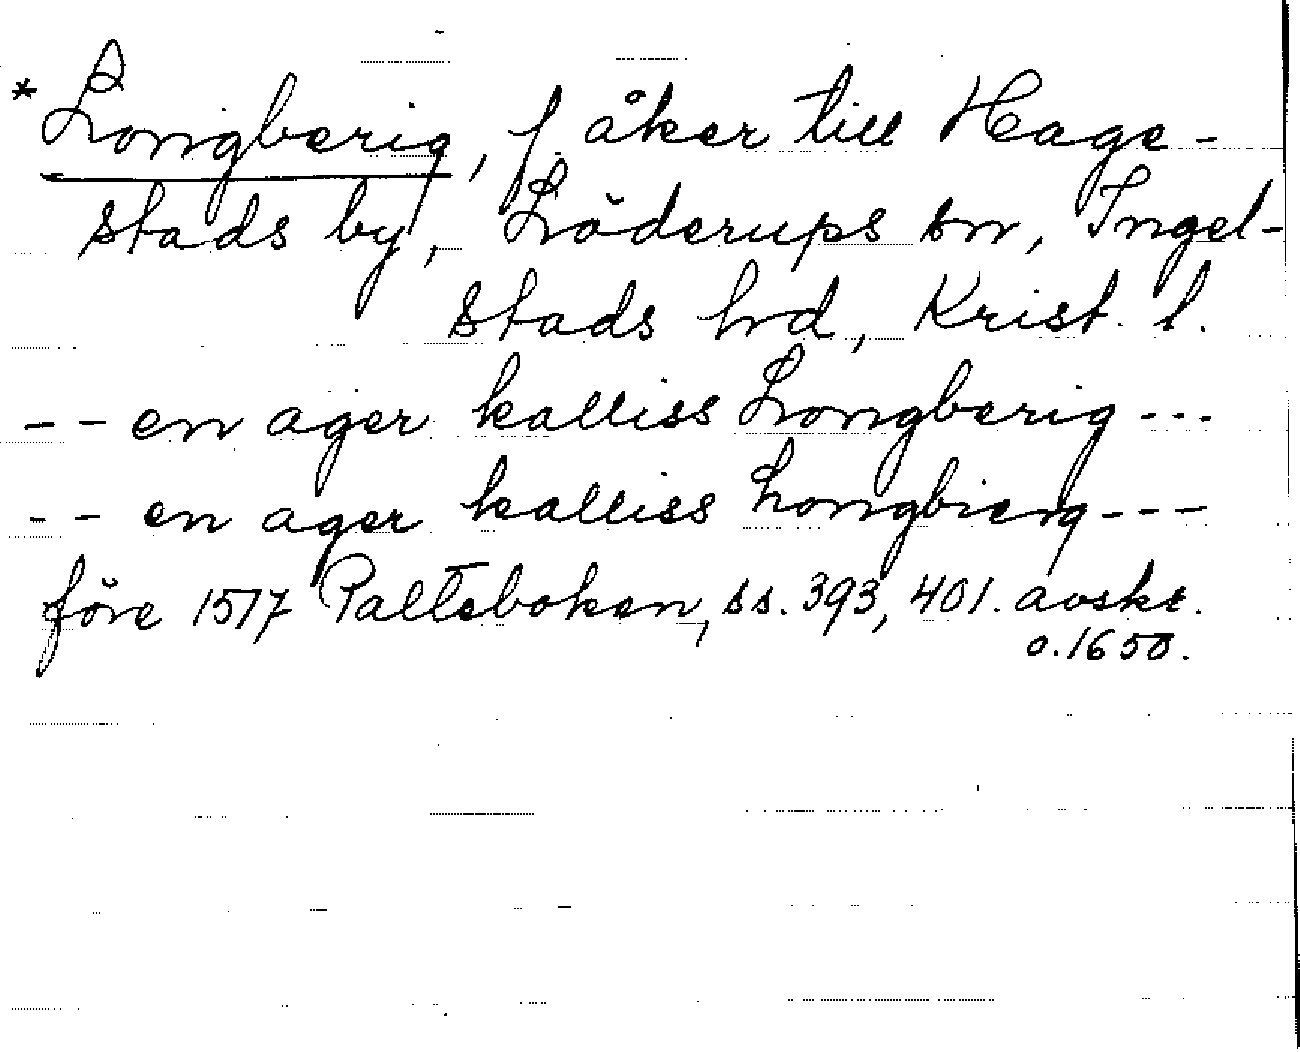 *Longberig, f. åker till Hage-
stads by, Löderups sn, Ingel-
stads hrd, Krist. l.
-- en ager kalliss Longberig ---
-- en ager kalliss Longbierg ---
före 1517 Palteboken, ss. 393, 401. avskr.
o. 1650.